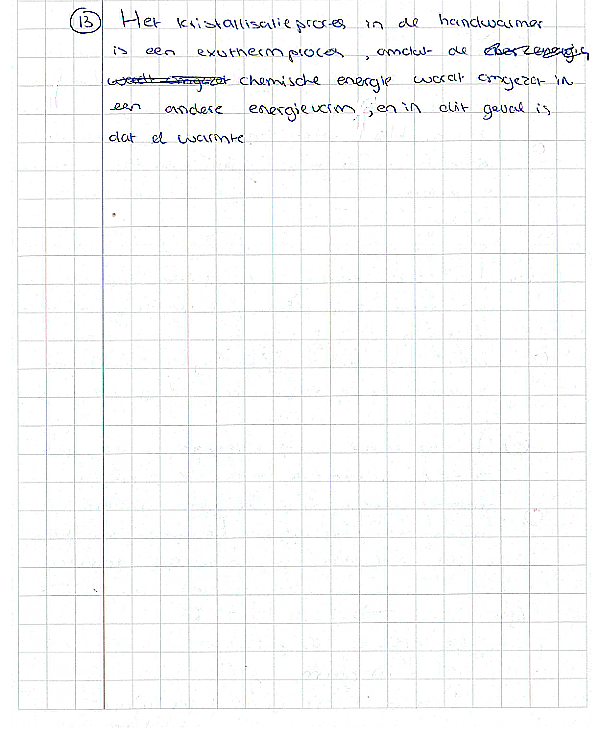 13 Het kristallisatieproces in de handwarmer
is een exotherm proces, omdat de
chemische energie wordt omgezet in
een andere energievorm, en in dit geval is
dat el warmte